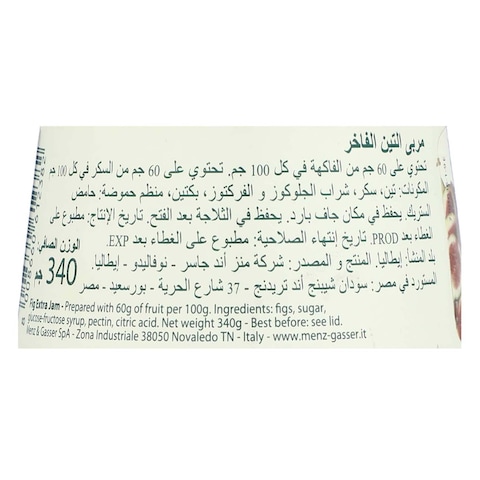 مربى التين الفاخر
تحتوي على 60 جم من الفاكهة في كل 100 جم. تحتوي على 60 جم من السكر في كل 100 جم
المكونات: تين، سكر، شراب الجلوكوز و الفركتوز، بكتين، منظم حموضة: حامض
الستريك. يحفظ في مكان جاف بارد. يحفظ في الثلاجة بعد الفتح. تاريخ الإنتاج: مطبوع على
الغطاء بعد PROD. تاريخ إنتهاء الصلاحية: مطبوع على الغطاء بعد EXP.
بلد المنشأ: إيطاليا. المنتج و المصدر: شركة منز أند جاسر - نوفاليدو - إيطاليا.
المستورد في مصر: سودان شيبنج أند تريدنج - 37 شارع الحرية - بورسعيد - مصر
الوزن الصافي:
340 جم
Fig Extra Jam - Prepared with 60g of fruit per 100g. Ingredients: figs, sugar,
glucose-fructose syrup, pectin, citric acid. Net weight 340g - Best before: see lid.
Menz & Gasser SpA - Zona Industriale 38050 Novaledo TN - Italy - www.menz-gasser.it